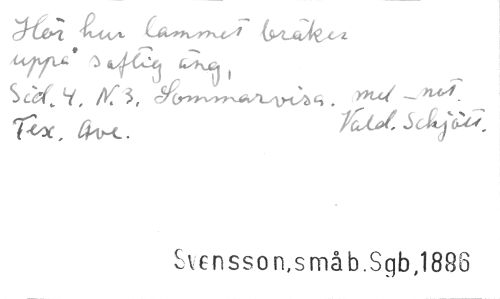 Hör hur lammet bräker
uppå saftig äng,
Sid. 4. N. 3. Sommarvisa. mel - not.
Tex. Ave. Vald. Schjött.
Svensson,småb.Sgb,1886